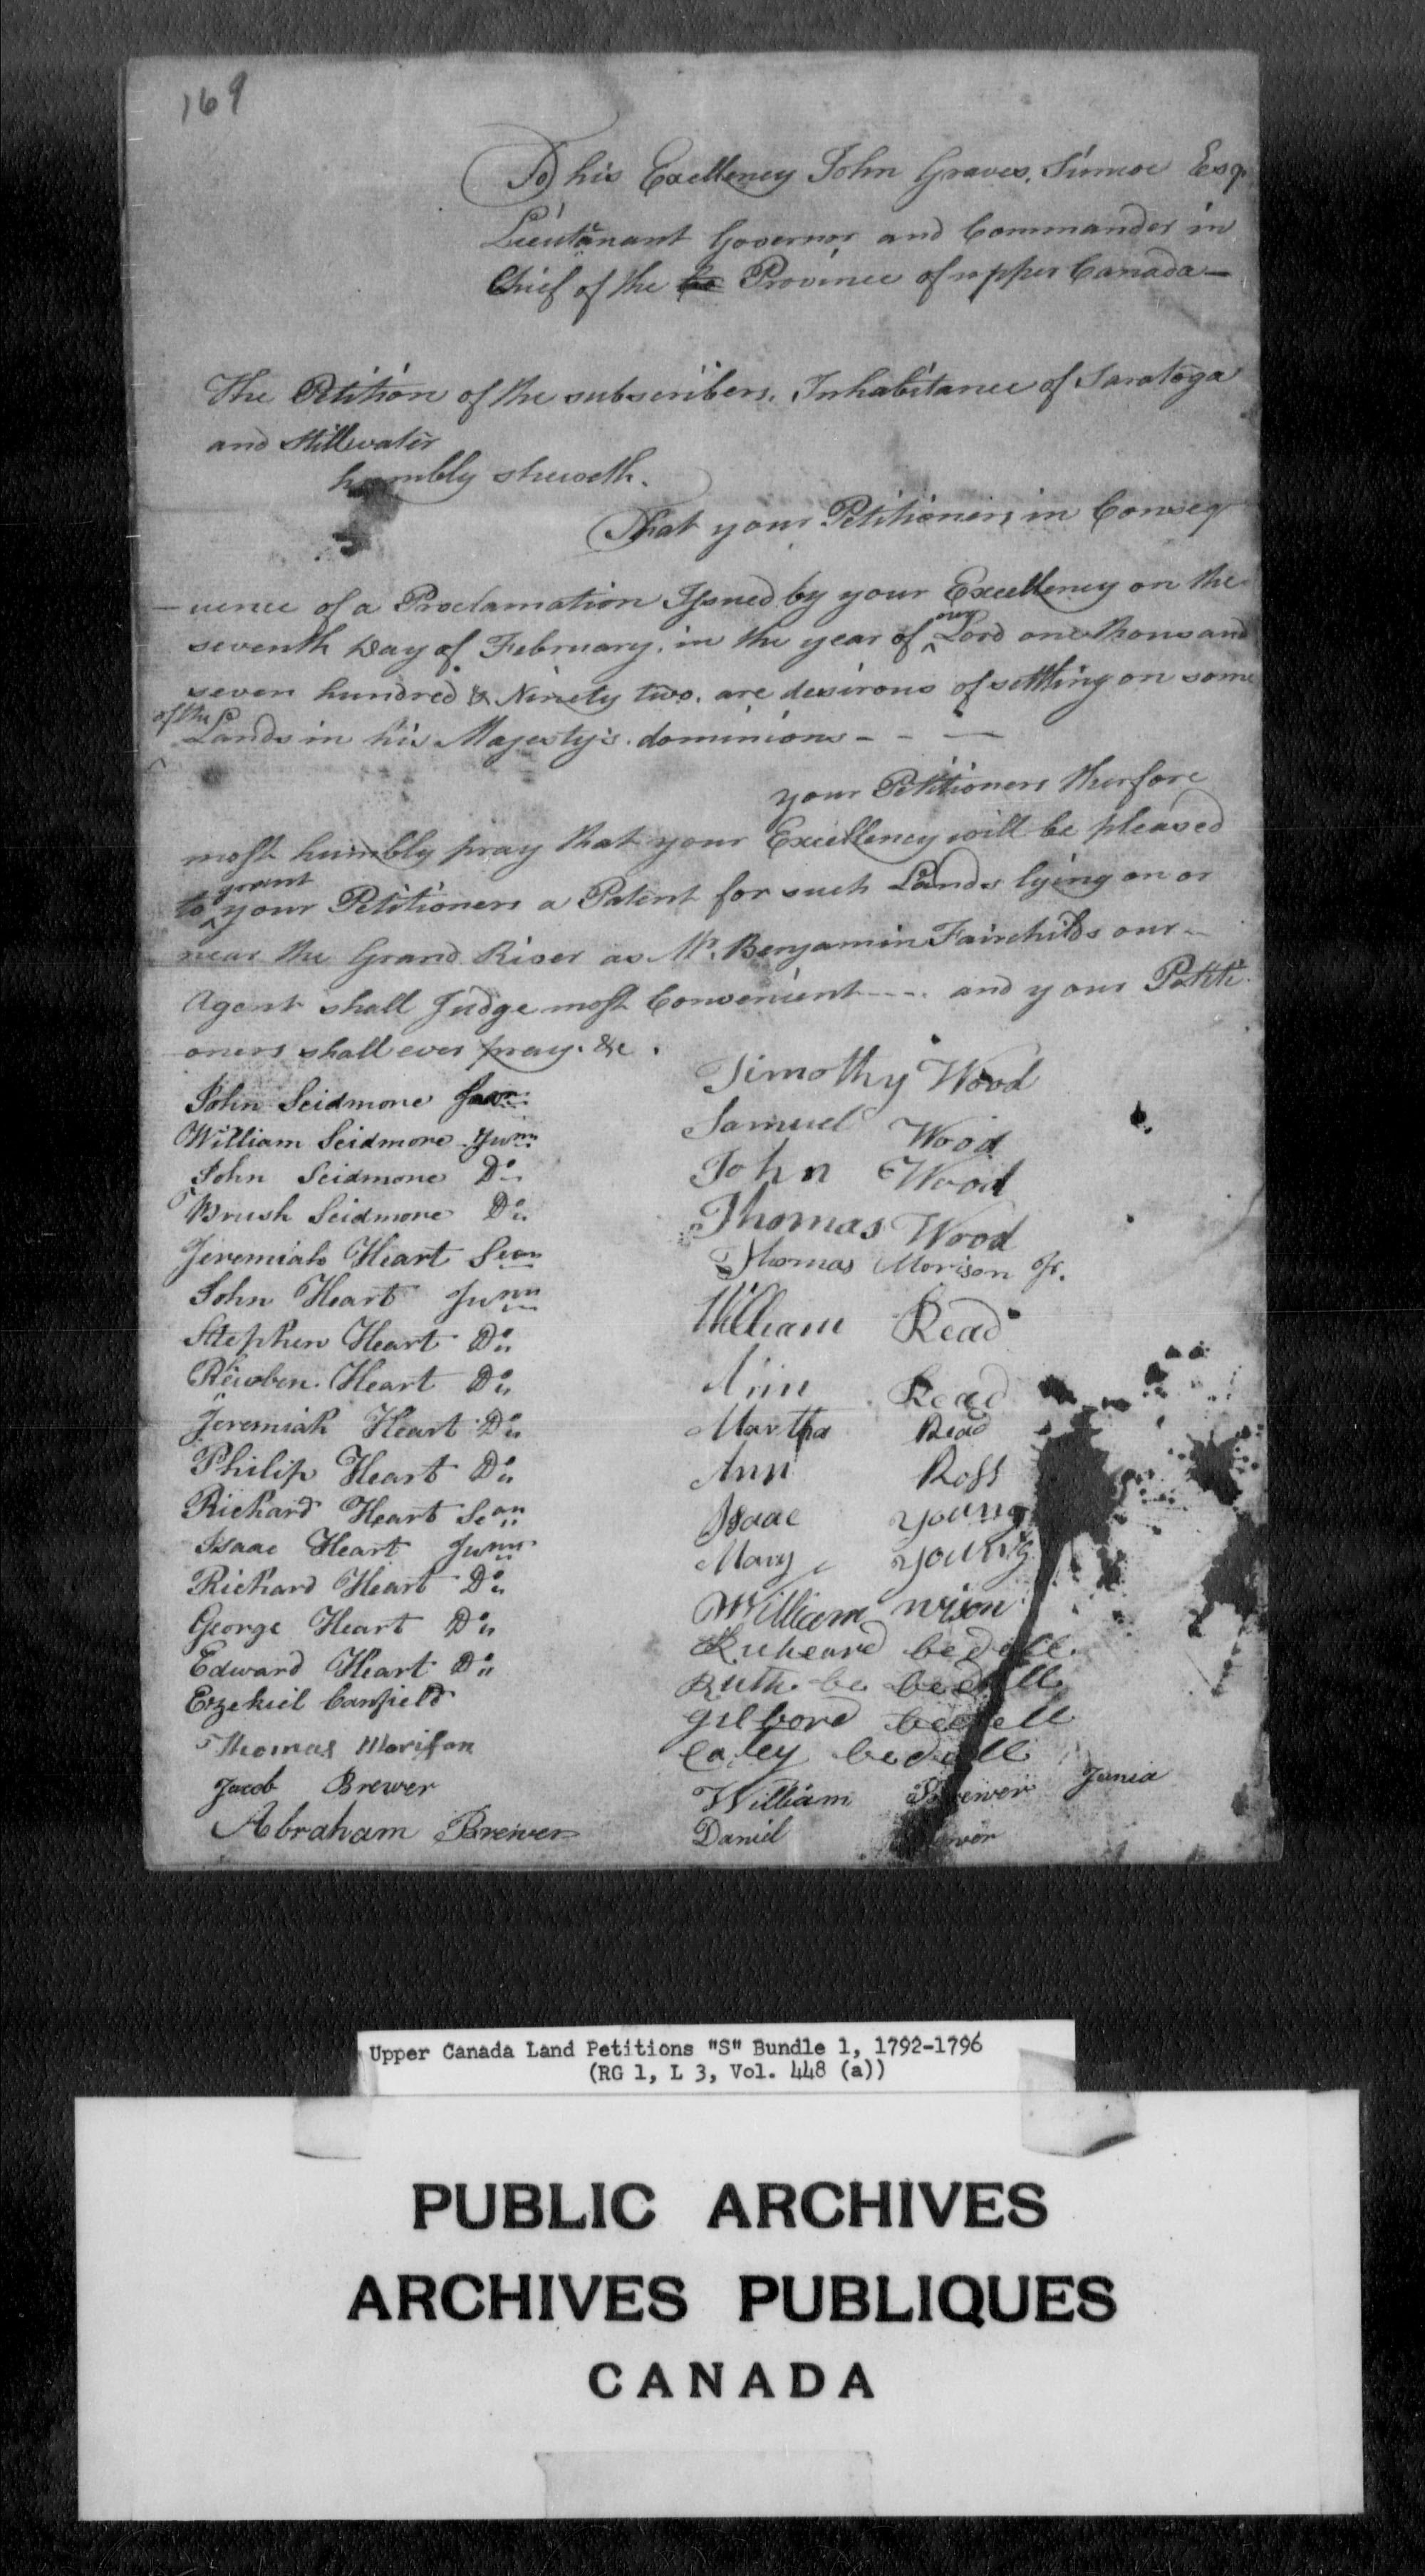 169
To his Exellency John Graves Simcoe Esqr
Lieutanant Governor and Commander in
Chief of the Province of upper Canada—
The Petition of the subscribers, Inhabitance of Saratoga
and Stillwater
humbly sheweth.
That your Petitioners in Conseq
—uence of a Proclamation Issued by your Excellency on the
seventh Day of February, in the year of our Lord one thousand
seven hundred & Ninety two, are desirous of settling on some
of the Lands in his Majesty's dominions - - —
your Petitioners therfore
most humbly pray that your Excellency will be pleased
to grant your Petitioners a Patent for such Lands lying on or
near the Grand River as Mr. Benjamin Fairchilds our —
Agent shall Judge most Convenient ---- and your Petiti
oners shall ever pray. &c.
John Seidmore
William Seidmore Junr
John Seidmore Do
Brush Seidmore Do
Jeremiah Heart Senr
John Heart Junr
Stephen Heart Do
Reuben Heart Do
Jeremiah Heart Do
Philip Heart Do
Richard Heart Senr
Isaac Heart Junr
Richard Heart Do
George Heart Do
Edward Heart Do
Ezekiel Canfield
Thomas Morison
Jacob Brewer
Abraham Brewer
Timothy Wood
Samuel Wood
John Wood
Thomas Wood
Thomas Morison Jr.
William Read
Ann Read
Martha Read
Ann Ross
Isaac Young
Mary Young
William
Richeard bedell
Ruth be bedell
gilbord bedell
Caley bedell
William Brewer Junia
Daniel Brewer
Upper Canada Land Petitions "S" Bundle 1, 1792-1796
(RG 1, L 3, Vol. 448 (a))
PUBLIC ARCHIVES
ARCHIVES PUBLIQUES
CANADA